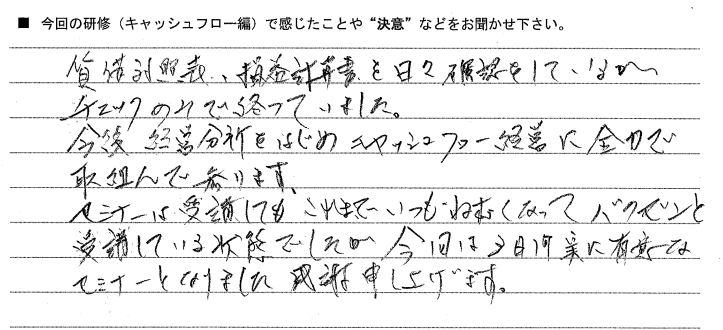 ■ 今回の研修（キャッシュフロー編）で感じたことや“決意”などをお聞かせ下さい。
貸借対照表、損益計算書を日々確認をしているが
チェックのみで終っていました。
今後 経営分析をはじめ キャッシュフロー経営に全力で
取組んで参ります。
セミナーは受講しても これまでいつもねむくなって バクゼンと
受講している状態でしたが 今回は3日間 実に有意な
セミナーとなりました 感謝申し上げます。